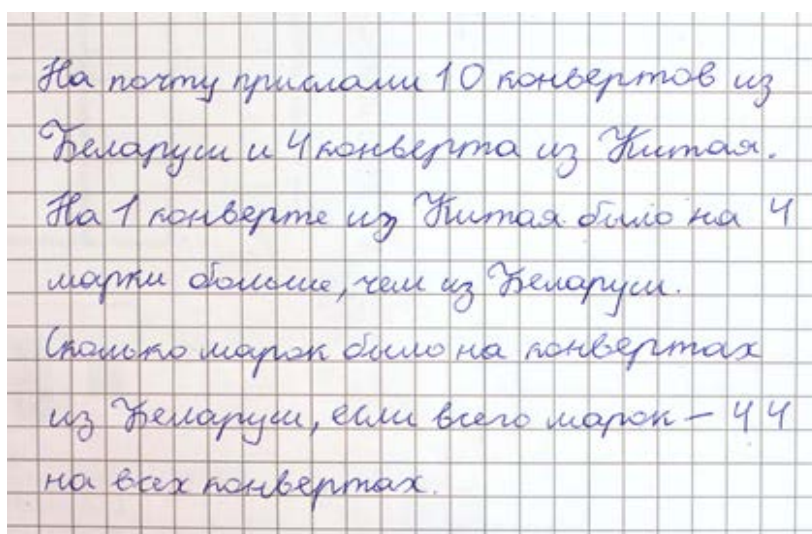 На почту прислали 10 конвертов из
Беларуси и 4 конверта из Китая.
На 1 конверте из Китая было на 4
марки больше, чем из Беларуси.
Сколько марок было на конвертах
из Беларуси, если всего марок – 44
на всех конвертах.